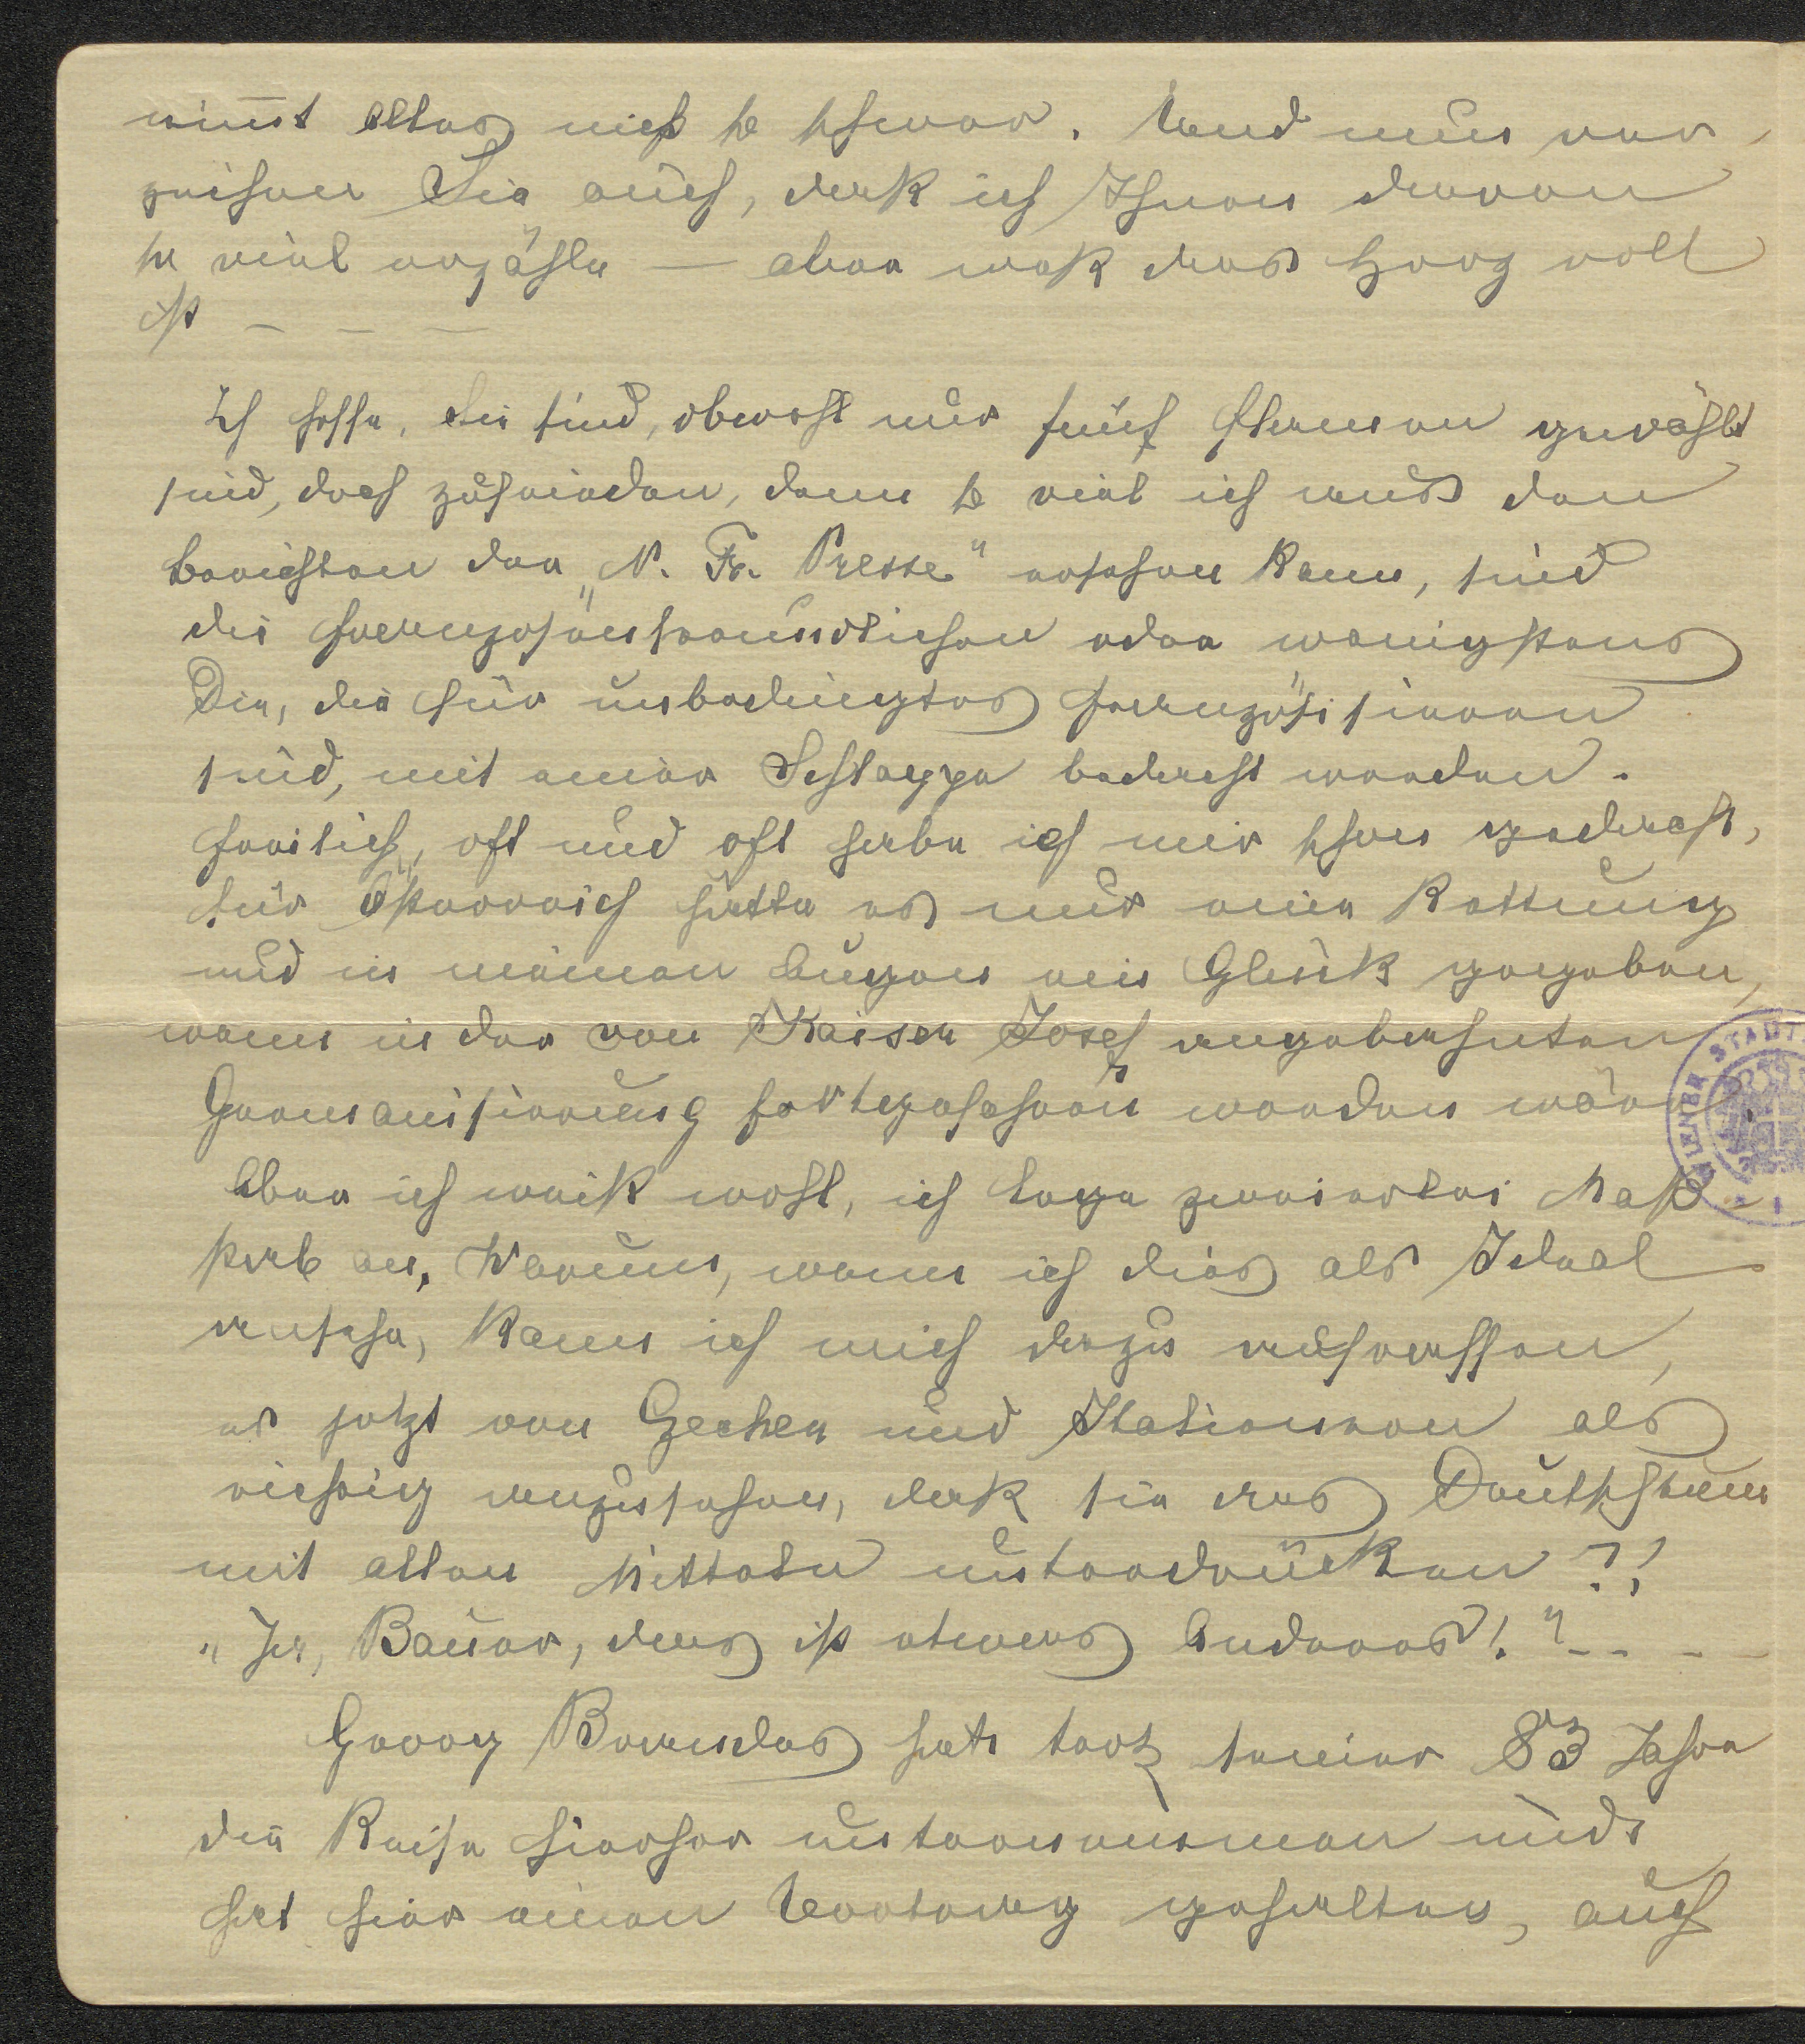 nimt Alles nicht so schwer. Und nun ver-
zeihen Sie auch, daß ich Ihnen davon
so viel erzähle — aber weß das Herz voll
ist – – –
Ich hoffe, Sie sind, obwohl nur fünf Herren gewählt
sind, doch zufrieden, denn so viel ich aus den
Berichten der „N. Fr. Presse" ersehen kann, sind
die Franzosenfreundlichen oder wenigstens
Die, die für unbedingtes Französisieren
sind, mit einer Schlappe bedacht worden.
Freilich, oft und oft habe ich mir schon gedacht,
für Österreich hätte es nur eine Rettung
und in meinen Augen ein Glück gegeben,
wenn in der von Kaiser Josef angebahnten
Germanisierung fortgefahren worden wäre.
Aber ich weiß wohl, ich lege zweierlei Maß-
stab an. Warum, wenn ich dies als Ideal
ansehe, kann ich mich dazu aufraffen,
es jetzt von Czechen und Italienern als
richtig anzusehen, daß sie das Deutschtum
mit allen Mitteln unterdrücken?!
„Ja, Bauer, das ist etwas Anderes!" – – – –
Georg Brandes hat trotz seiner 83 Jahre
die Reise hierher unternommen und
hat hier einen Vortrag gehalten, auch
WIENER STADT